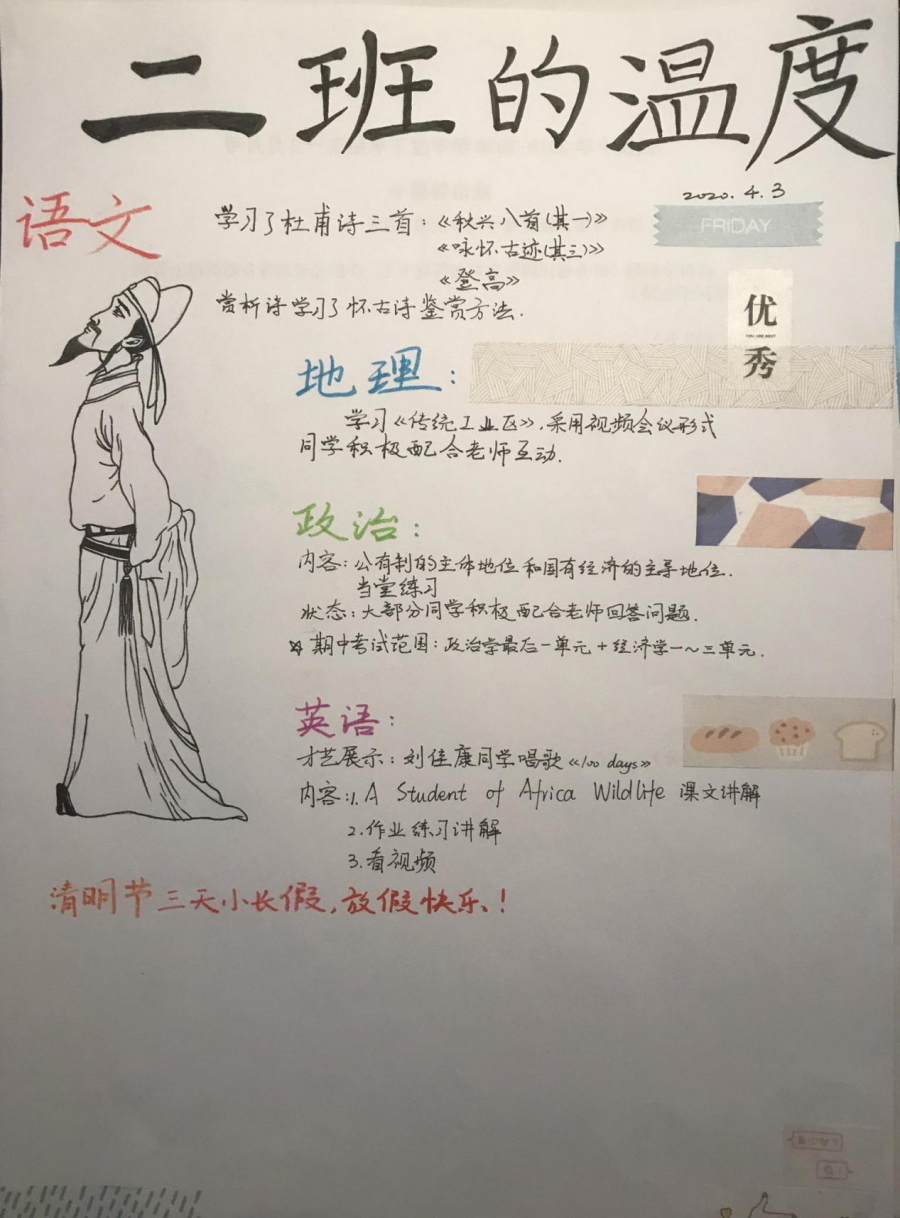 二班的温度
2020.4.3
FRIDAY
语文
学习了杜甫诗三首:《秋兴八首(其一)》
《咏怀古迹(其三)》
《登高》
赏析诗学习了怀古诗鉴赏方法.
优
YOU ARE BEST
秀
地理:
学习《传统工业区》,采用视频会议形式
同学积极配合老师互动.
政治:
内容:公有制的主体地位和国有经济的主导地位.
当堂练习
状态:大部分同学积极配合老师回答问题.
☆期中考试范围:政治学最后一单元+经济学一~三单元.
英语:
才艺展示:刘佳康同学唱歌《100 days》
内容:1. A Student of Africa Wildlife 课文讲解
2.作业练习讲解
3.看视频
清明节三天小长假,放假快乐、!